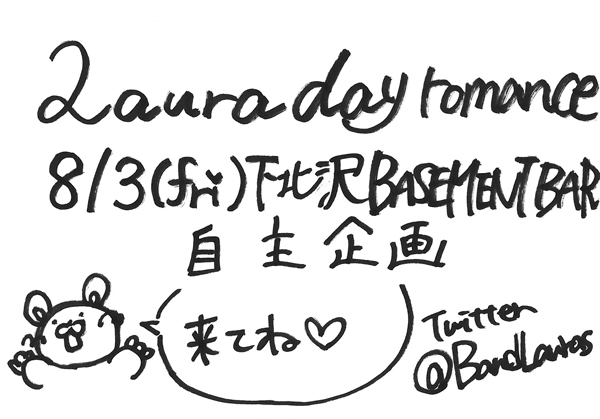 Laura day romance
8/3(fri)下北沢BASEMENTBAR
自主企画
来てね♡
Twitter
@BandLauras